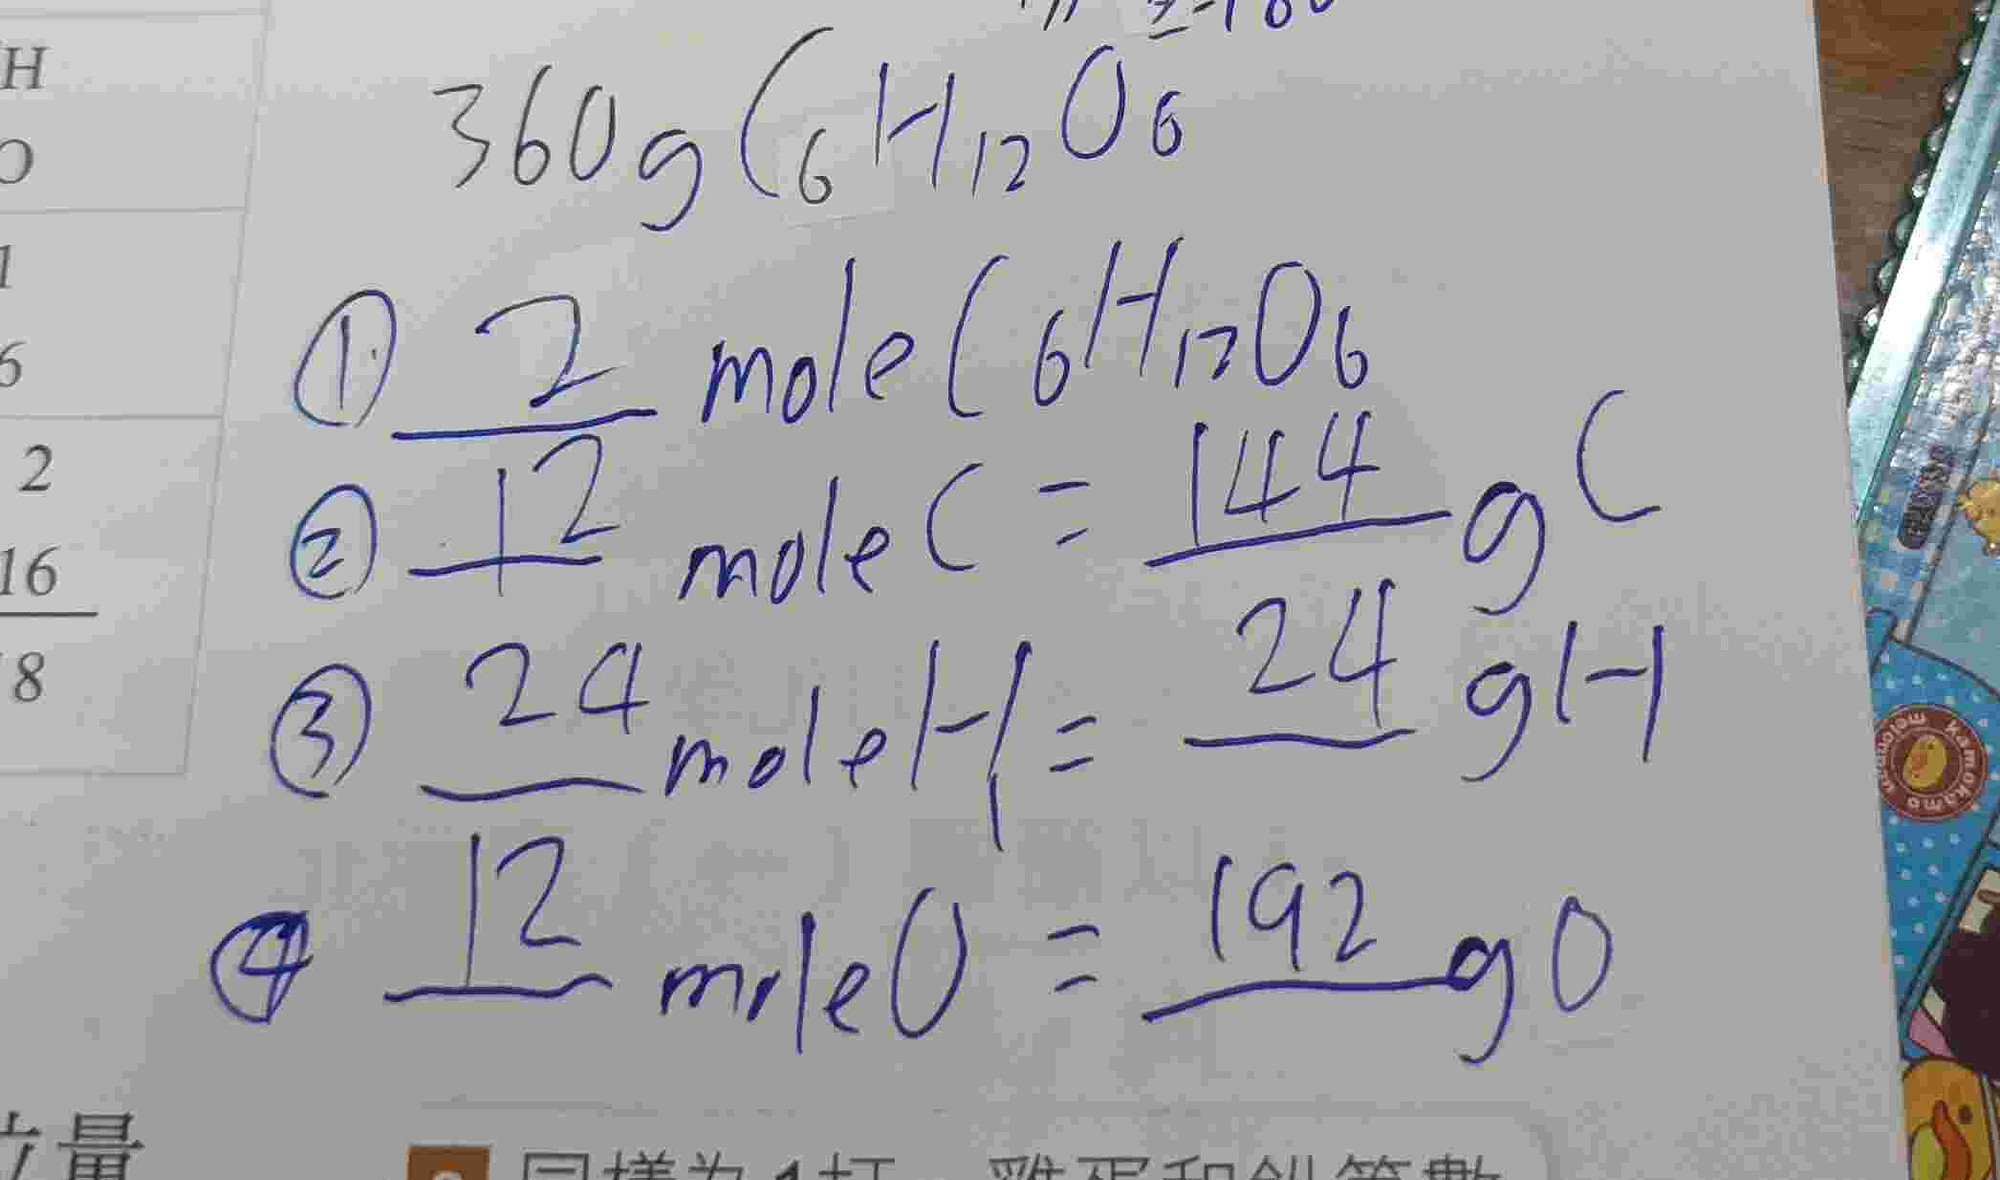 H
O
1
6
2
16
8
=180
360g C6H12O6
① 2 mole C6H12O6
② 12 mole C = 144 g C
③ 24 mole H = 24 g H
④ 12 mole O = 192 g O
量
同樣為1打
kamokamo